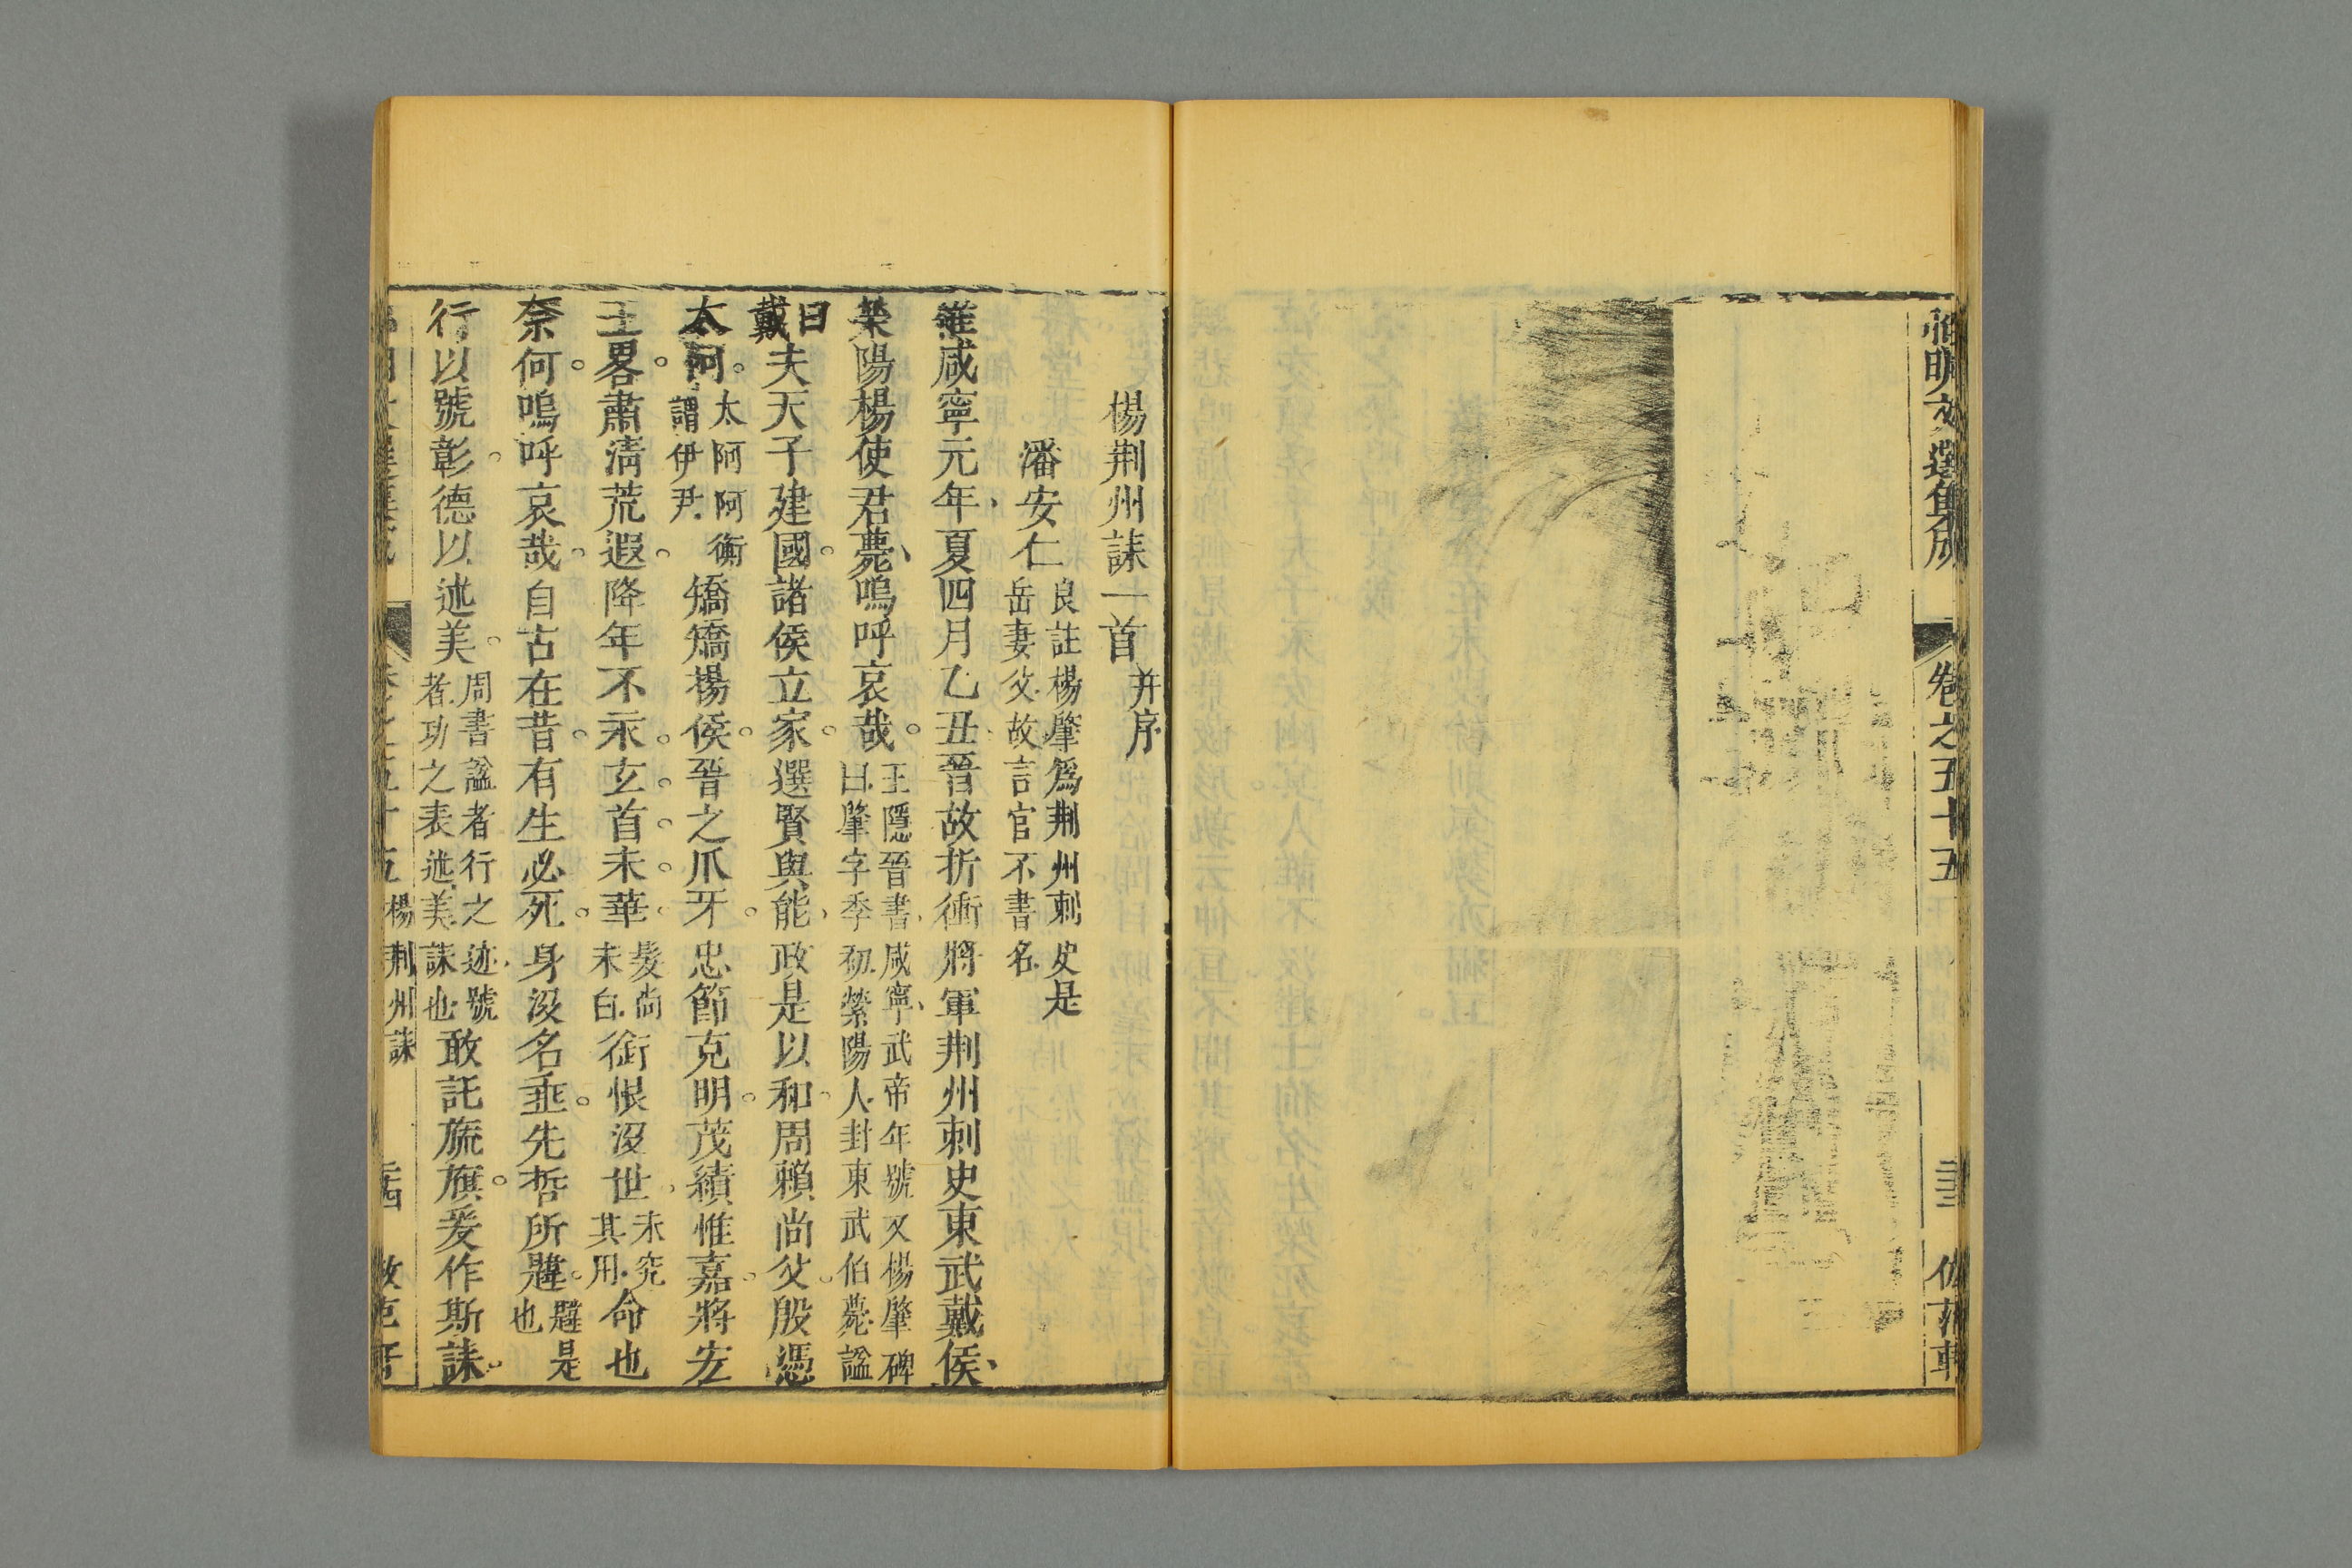 昭明文選集成 卷之五十五
楊荆州誄一首并序
潘安仁良註楊肇爲荆州刺史是岳妻父故言官不書名
維咸寧元年夏四月乙丑晉故折衝將軍荆州刺史東武戴侯
滎陽楊使君薨嗚呼哀哉王隱晉書咸寧武帝年號又楊肇碑曰肇字季初滎陽人封東武伯薨謚曰戴
夫天子建國諸侯立家選賢與能政是以和周賴尚父殷憑
太阿太阿阿衡謂伊尹矯矯楊侯晉之爪牙忠節克明茂績惟嘉將宏
王畧肅淸荒遐降年不永玄首未華髮尚未白銜恨沒世未究其用命也
奈何嗚呼哀哉自古在昔有生必死身沒名垂先哲所韙韙是也
行以號彰德以述美周書謚者行之迹號者功之表述美誄也敢託旒旗爰作斯誄
楊荆州誄